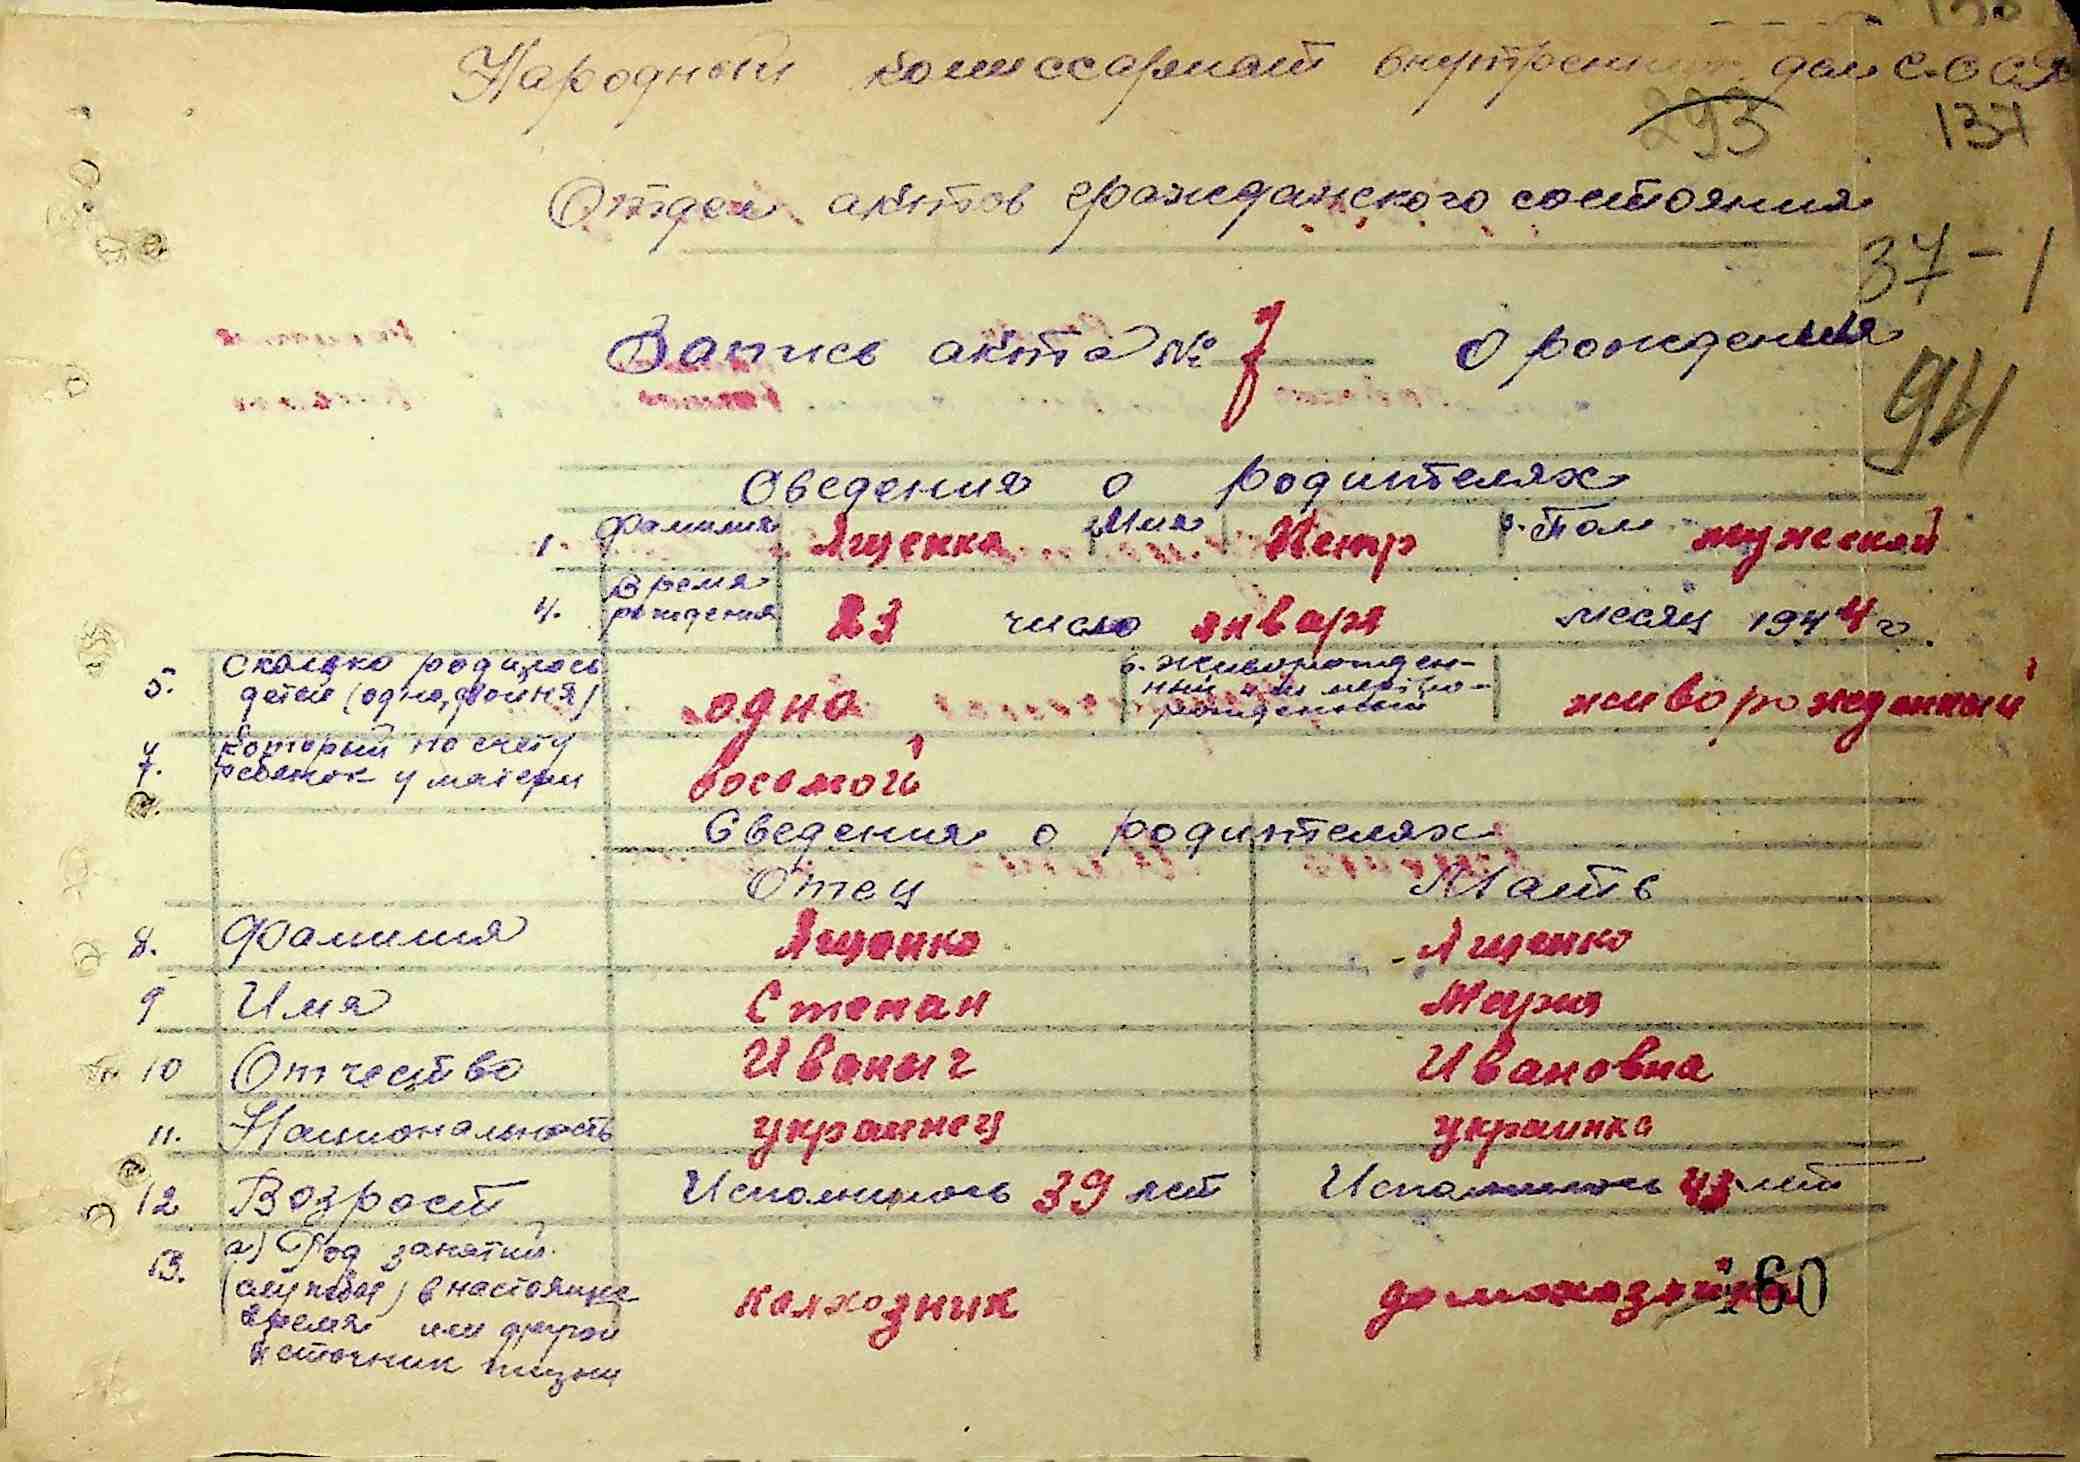 Народный комиссариат внутренних дел С.С.С.Р
293 137
Отдел актов гражданского состояния
37-1
Запись акта № 7 о рождении
94
Сведения о родителях
1. Фамилия Ященко 2. Имя Петр 3. Пол мужской
4. Время рождения 23 число января месяц 1944 г.
5. Сколько родилось детей (одно, двойня) одно 6. Живорожденный или мертворожденный живорожденный
7. Который по счету ребенок у матери восьмой
Сведения о родителях
Отец Мать
8. Фамилия Ященко Ященко
9 Имя Степан Мария
10 Отчество Иваныч Ивановна
11. Национальность украинец украинка
12 Возраст Исполнилось 39 лет Исполнилось 43 лет
13. а) Род занятий (служба) в настоящее время или другой источник жизни колхозник домохозяйка
160